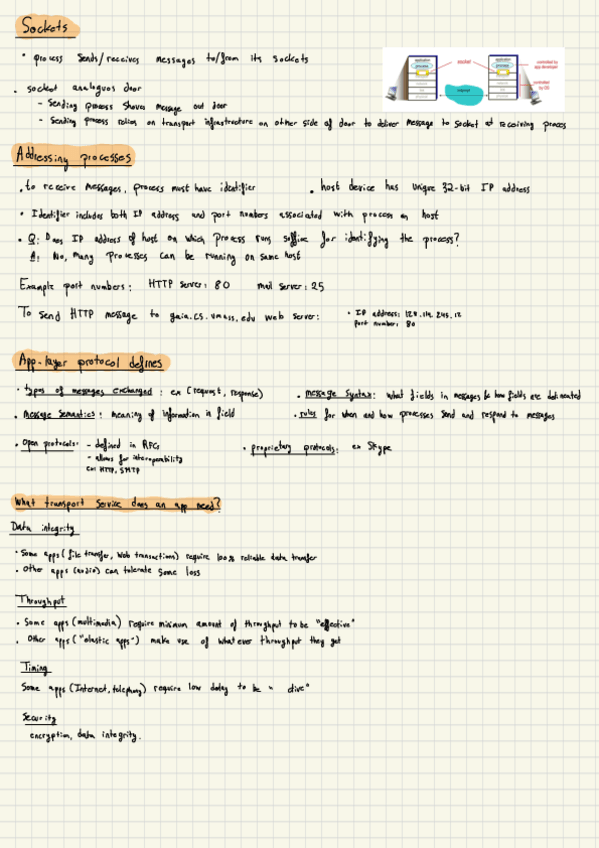 Sockets
• process sends/receives messages to/from its sockets
• socket analogous door
- Sending process shoves message out door
- Sending process relies on transport infrastructure on other side of door to deliver message to socket at receiving proces
application
process
socket
application
process
controlled by
app developer
controlled
by OS
Internet
Addressing processes
• to receive messages, process must have identifier
• host device has unique 32-bit IP address
• Identifier includes both IP address and port numbers associated with process on host
• Q: Does IP address of host on which process runs suffice for identifying the process?
A: No, many processes can be running on same host
Example port numbers: HTTP server: 80 mail server: 25
To send HTTP message to gaia.cs.umass.edu web server:
• IP address: 128.119.245.12
port number: 80
App-layer protocol defines
• types of messages exchanged: ex (request, response)
• message syntax: what fields in messages & how fields are delineated
• message semantics: meaning of information in field
• rules for when and how processes send and respond to messages
• open protocols: - defined in RFCs
- allows for interoperability
ex: HTTP, SMTP
• proprietary protocols: ex Skype
What transport service does an app need?
Data integrity
• Some apps (file transfer, web transactions) require 100% reliable data transfer
• Other apps (audio) can tolerate some loss
Throughput
• Some apps (multimedia) require minimum amount of throughput to be "effective"
• Other apps ("elastic apps") make use of whatever throughput they get
Timing
Some apps (Internet, telephony) require low delay to be " ctive"
Security
encryption, data integrity.